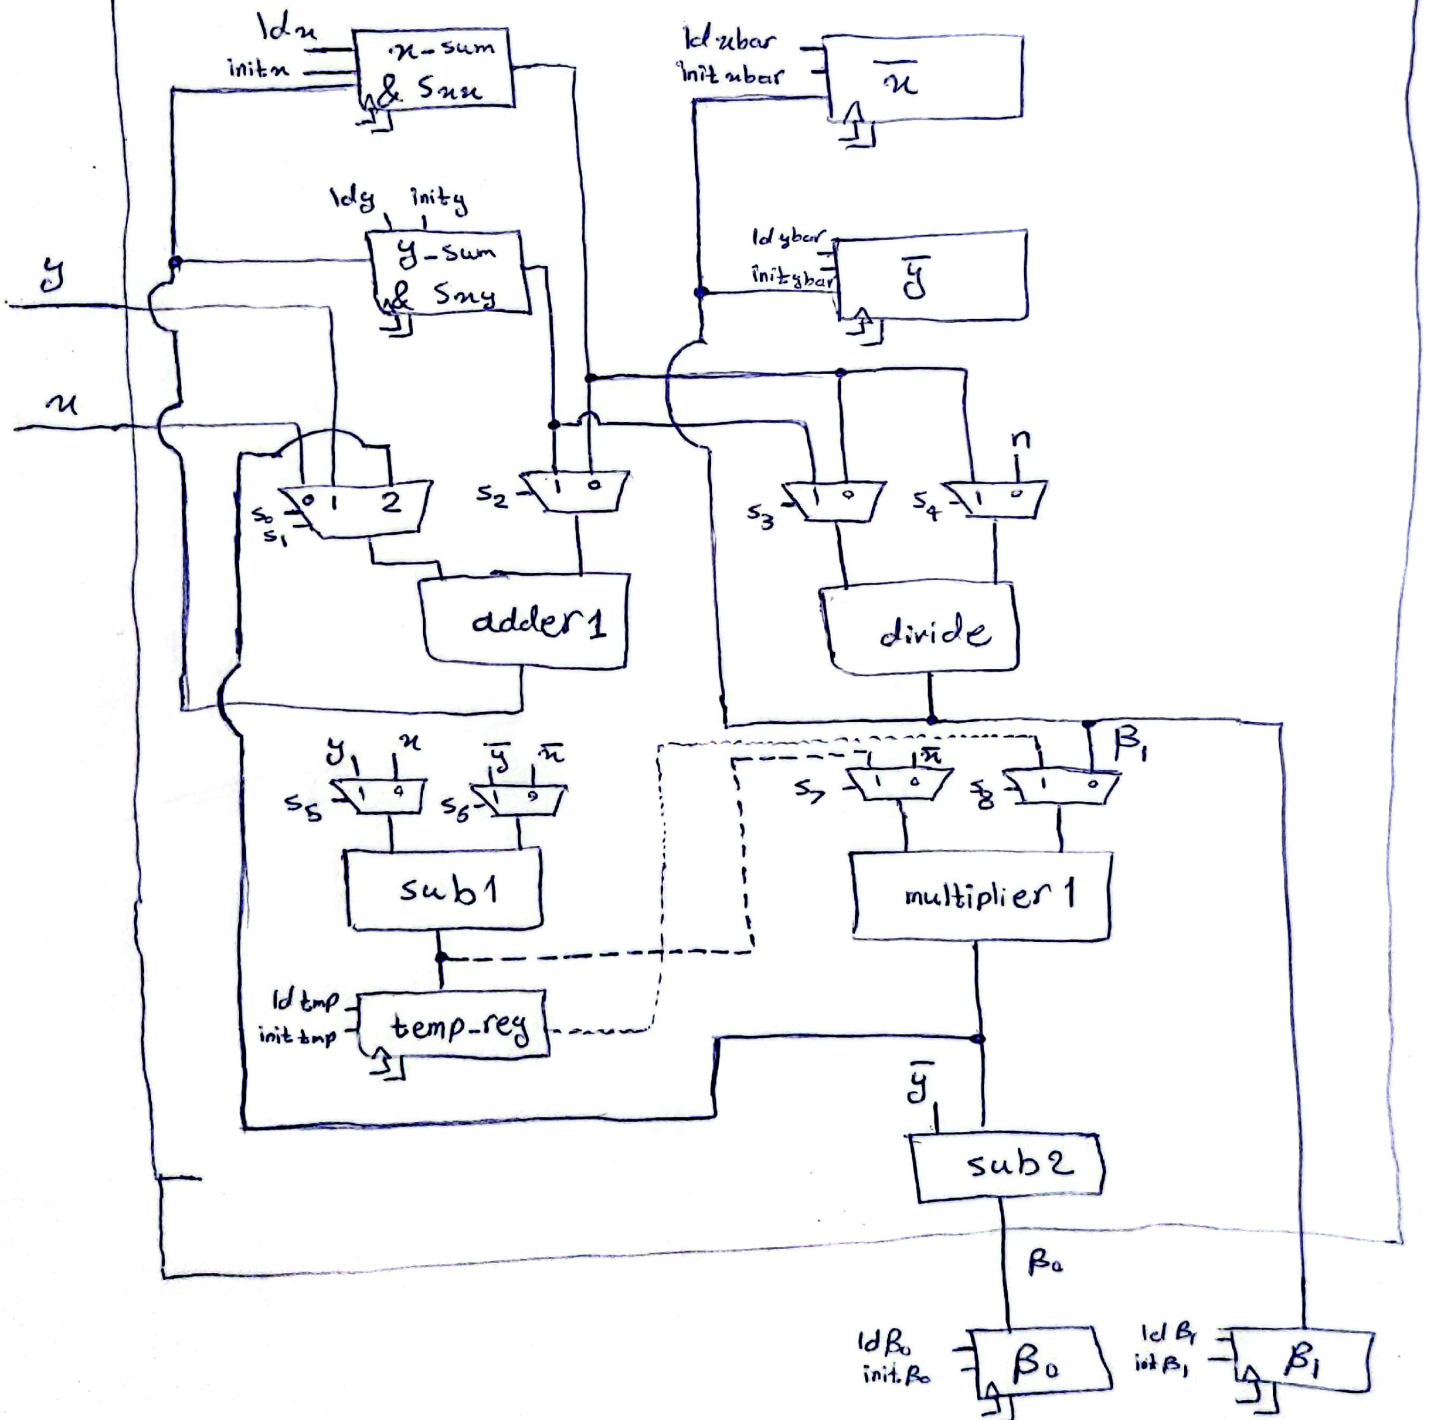 ldx
x-sum
initx
& Sxx
ld xbar
init xbar
x̄
ldy inity
y-sum
& Sxy
ld ybar
init ybar
ȳ
y
x
n
0 1 2
S0
S1
S2 1 0
S3 1 0
S4 1 0
adder 1
divide
y x
S5 1 0
ȳ x̄
S6 1 0
x̄
S7 1 0
β1
S8 1 0
sub1
multiplier 1
ld tmp
init tmp
temp-reg
ȳ
sub2
β0
ldβ0
init.β0
β0
ld β1
init β1
β1